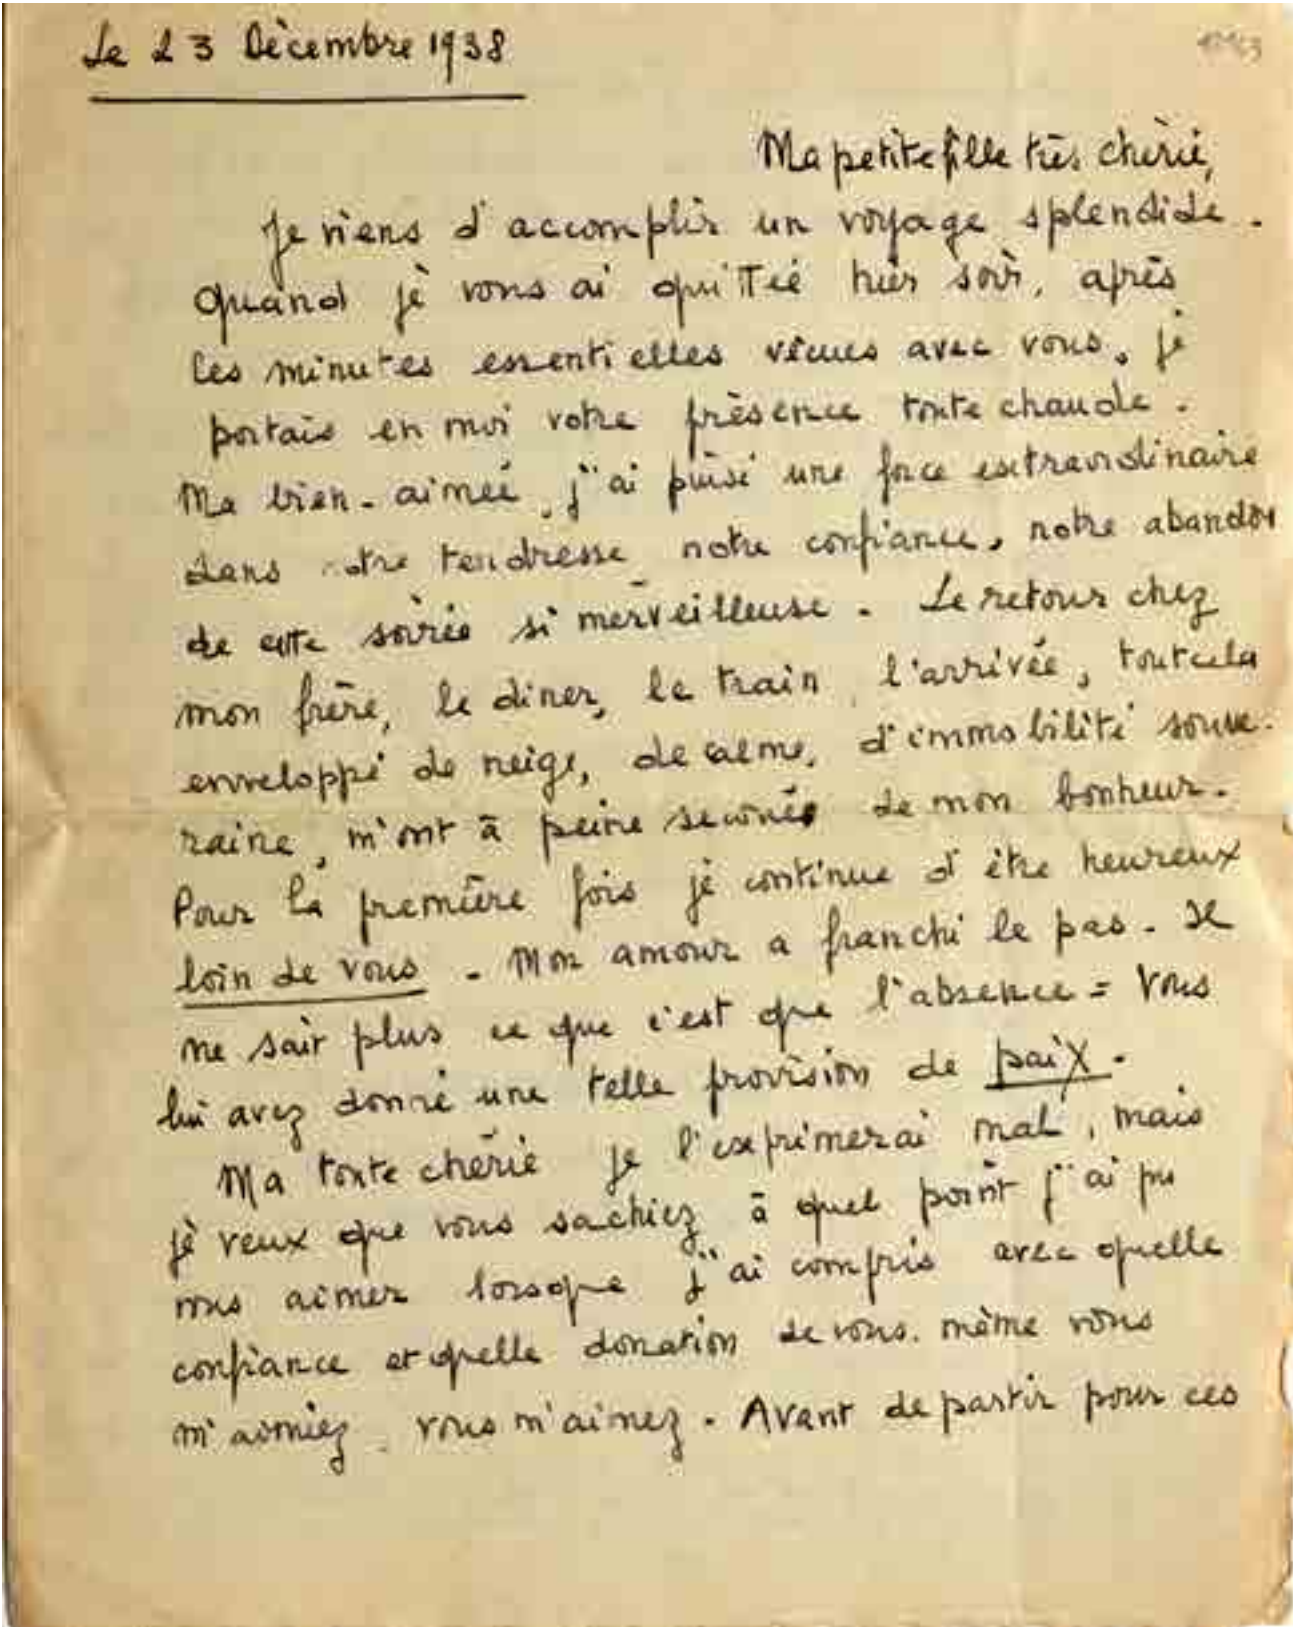 Le 23 Décembre 1938
Ma petite fille très chérie,
Je viens d'accomplir un voyage splendide.
Quand je vous ai quittée hier soir, après
les minutes essentielles vécues avec vous, je
portais en moi votre présence toute chaude.
Ma bien-aimée, j'ai puisé une force extraordinaire
dans notre tendresse, notre confiance, notre abandon
de cette soirée si merveilleuse. Le retour chez
mon frère, le dîner, le train, l'arrivée, tout cela
enveloppé de neige, de calme, d'immobilité souve-
raine, m'ont à peine secoué de mon bonheur.
Pour la première fois je continue d'être heureux
loin de vous. Mon amour a franchi le pas. Il
ne sait plus ce que c'est que l'absence = Vous
lui avez donné une telle provision de paix.
Ma toute chérie je l'exprimerai mal, mais
je veux que vous sachiez à quel point j'ai pu
vous aimer lorsque j'ai compris avec quelle
confiance et quelle donation de vous-même vous
m'aimiez, vous m'aimez. Avant de partir pour ces